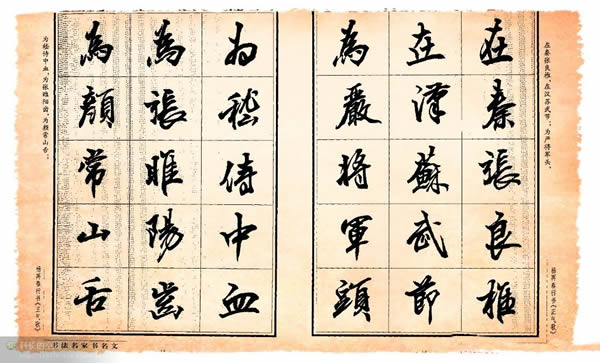 在秦张良椎、在汉苏武节;为严将军头、
杨再春行书《正气歌》
在秦張良椎
在漢蘇武節
為嚴將軍頭
為嵇侍中血
為張睢陽齒
為顏常山舌
为嵇侍中血、为张睢阳齿、为颜常山舌;
杨再春行书《正气歌》
书法名家书名文